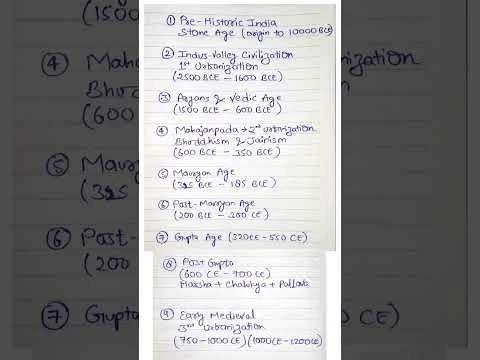 ① Pre-Historic India
Stone Age (origin to 10000 BCE)
② Indus Valley Civilization
1st Urbanization
(2500 BCE - 1600 BCE)
③ Aryans & Vedic Age
(1500 BCE - 600 BCE)
④ Mahajanpada → 2nd urbanization
Bhuddhism & Jainism
(600 BCE - 350 BCE)
⑤ Mauryan Age
(325 BCE - 185 BCE)
⑥ Post-Mauryan Age
(200 BCE - 300 CE)
⑦ Gupta Age (320CE-550 CE)
⑧ Post Gupta
(600 CE - 700 CE)
Harsha + Chalukya + Pallava
⑨ Early Medieval
3rd Urbanization
(750-1000CE)(1000CE-1200CE)
(1500
④ Maha
Bhudd
(600
⑤ Maurya
(325
⑥ Post-
(200
⑦ Gupta
CE)